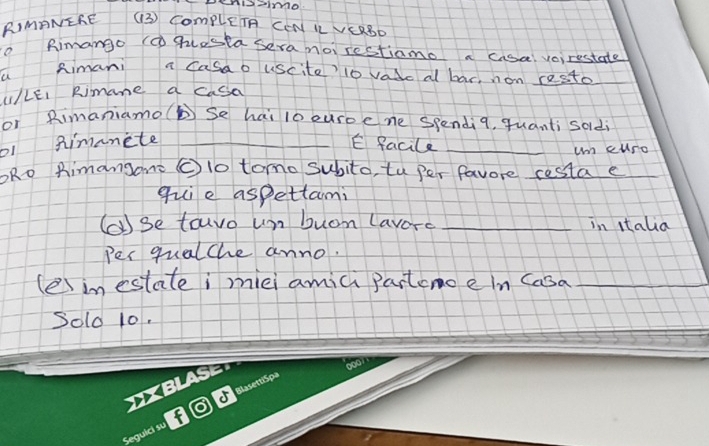 BENISSIMO
RIMANERE (13) COMPLETA CON IL VERBO
o Rimango (a) questa sera noi restiamo a casa. voi restate
u Rimani a casa o uscite? Io vado al bar, non resto
UI/LEI Rimane a casa
OI Rimaniamo (b) Se hai 10 euro e ne spendi 9, quanti soldi
OI Rimanete ________ È facile ________ um euro
ORO Rimangono (c) Io torno subito, tu per favore resta e
qui e aspettami
(d) Se trovo um buon lavoro ________ in italia
Per qualche anno.
(e) in estate i miei amici Partono e in casa ________
Solo 10.
BLASET
Seguici su BlasettiSpa
0007